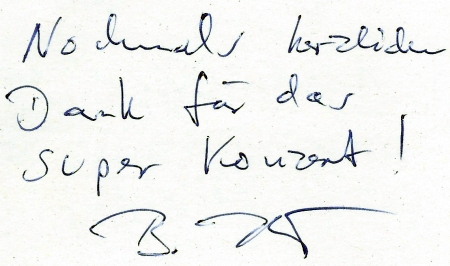 Nochmals herzlichen
Dank für das
super Konzert!
B.